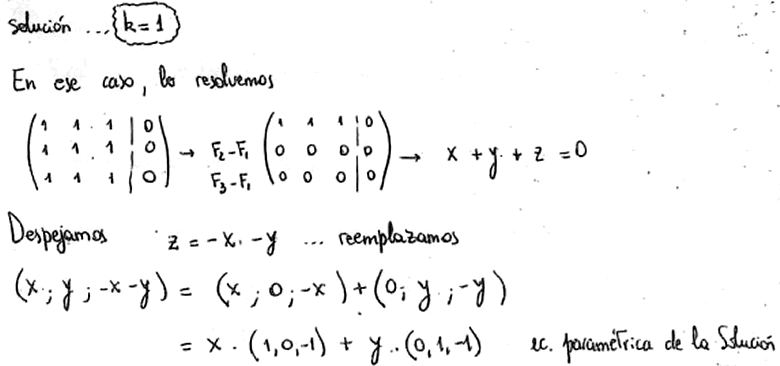 solución ... k=1
En ese caso, lo resolvemos
(1 1 1 | 0) (1 1 1 | 0)
(1 1 1 | 0) → F₂-F₁ (0 0 0 | 0) → x + y + z = 0
(1 1 1 | 0) F₃-F₁ (0 0 0 | 0)
Despejamos z = -x - y ... reemplazamos
(x ; y ; -x -y) = (x ; 0 ; -x) + (0 ; y ; -y)
= x . (1,0,-1) + y . (0,1,-1) ec. paramétrica de la Solución